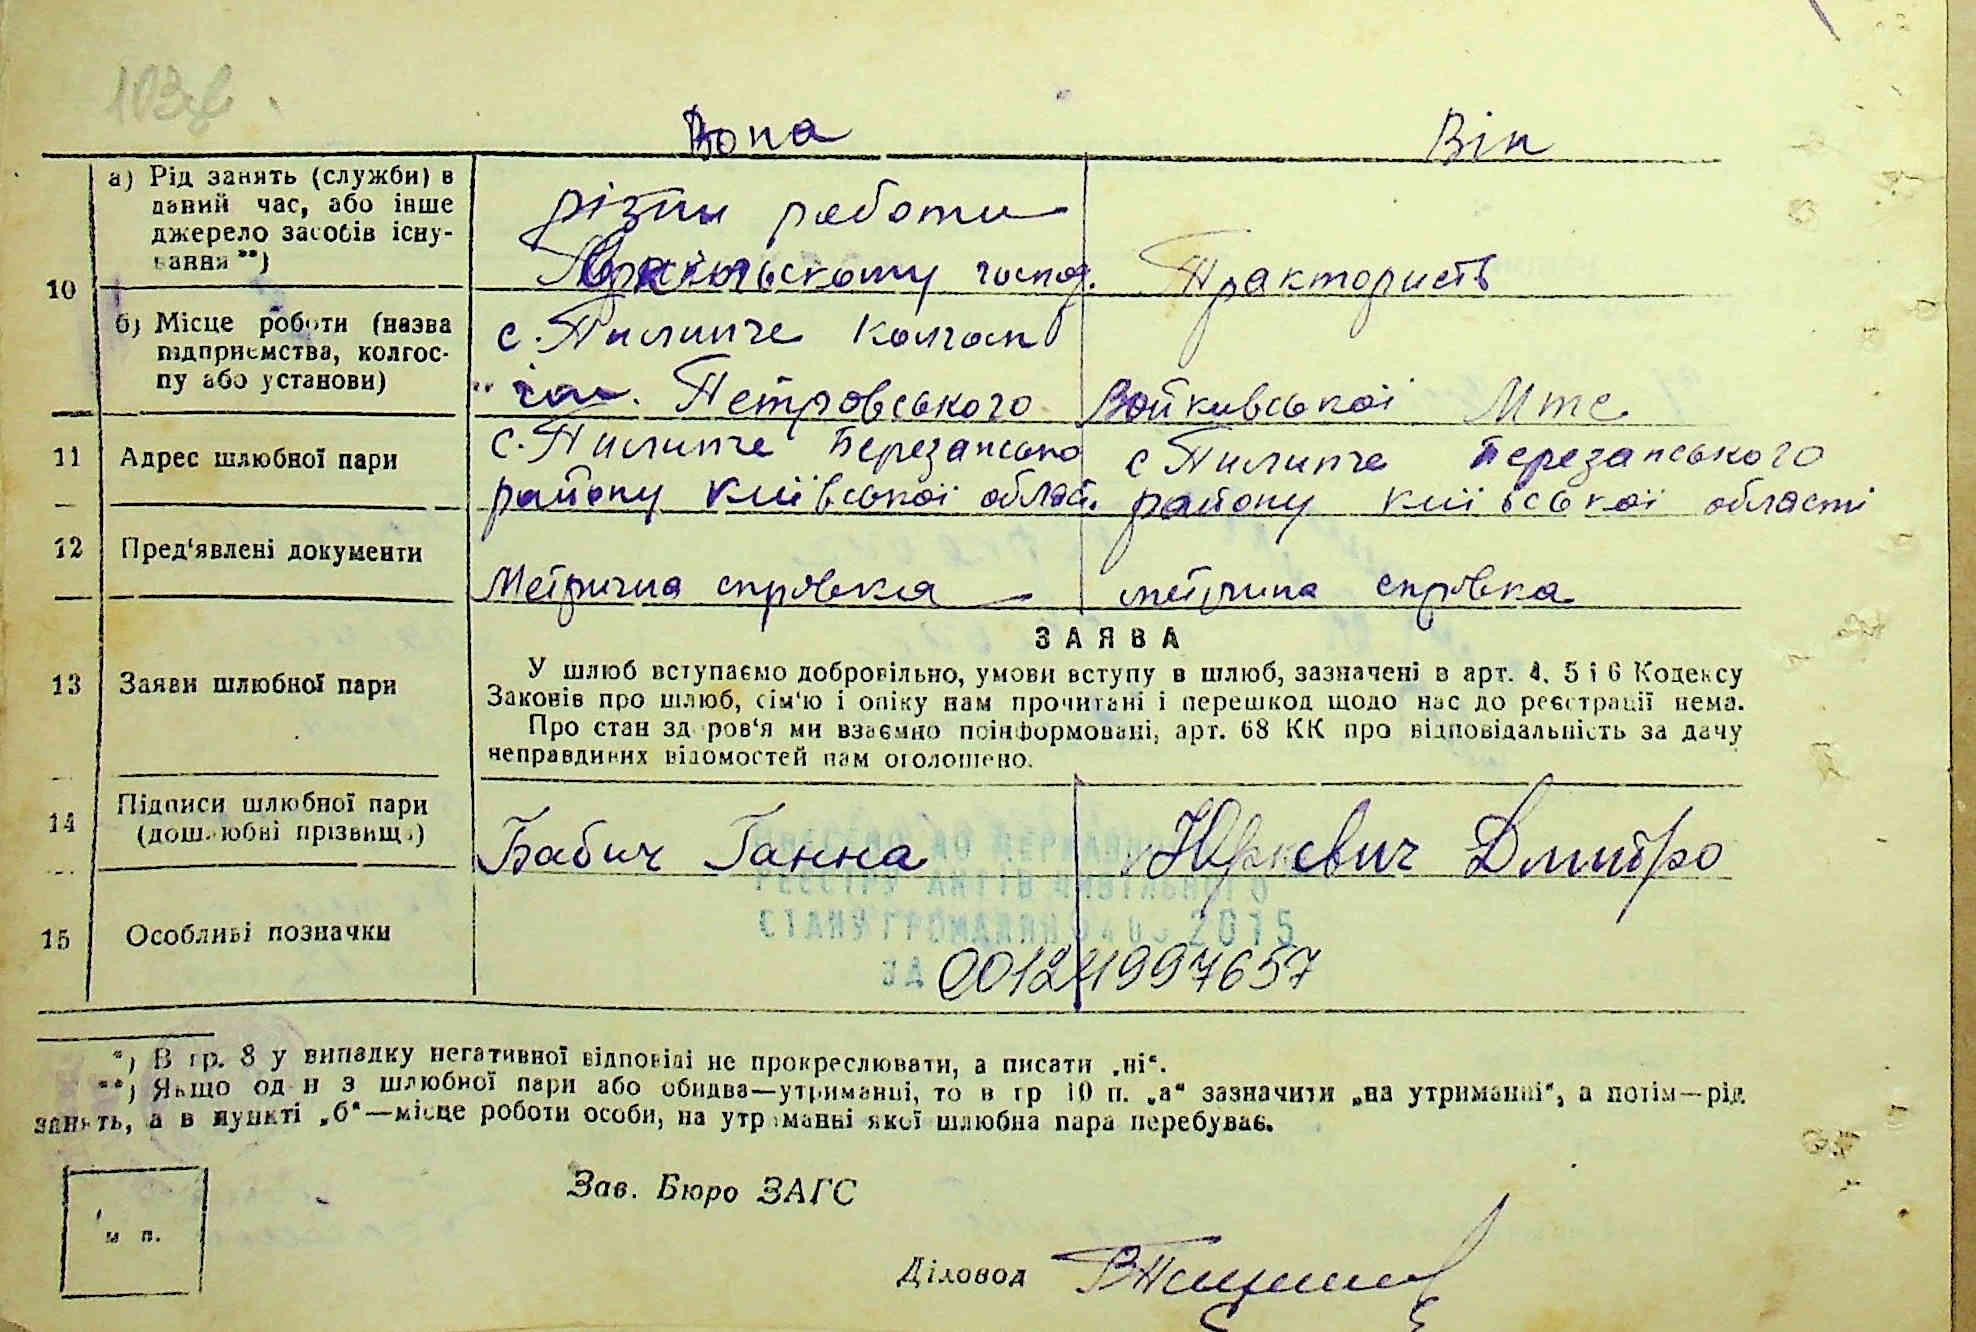 103зв
Вона Він
а) Рід занять (служби) в
даний час, або інше
джерело засобів існу-
вання **)
різни работи
сільському господ.
Тракторист
10
б) Місце роботи (назва
підприємства, колгос-
пу або установи)
с. Пилипче Колгосп
ім. Петровського
Войківської Мтс
11 Адрес шлюбної пари
с. Пилипче Березансько
району київської област.
с Пилипче Березанського
району київської області
12 Пред'явлені документи
Метрична справка метрична справка
ЗАЯВА
13 Заяви шлюбної пари
У шлюб вступаємо добровільно, умови вступу в шлюб, зазначені в арт. 4, 5 і 6 Кодексу
Законів про шлюб, сім'ю і опіку нам прочитані і перешкод щодо нас до реєстрації нема.
Про стан здоров'я ми взаємно поінформовані, арт. 68 КК про відповідальність за дачу
неправдивих відомостей нам оголошено.
14 Підписи шлюбної пари
(дошлюбні прізвища)
Бабич Ганна Юркевич Дмитро
ВНЕСЕНО ДО ДЕРЖАВНОГО
РЕЄСТРУ АКТІВ ЦИВІЛЬНОГО
СТАНУ ГРОМАДЯН 2015
ЗА 00124997657
15 Особливі позначки
*) В гр. 8 у випадку негативної відповіді не прокреслювати, а писати „ні“.
**) Якщо один з шлюбної пари або обидва—утриманці, то в гр 10 п. „а“ зазначити „на утриманні“, а потім—рід
занять, а в пункті „б“—місце роботи особи, на утриманні якої шлюбна пара перебуває.
Зав. Бюро ЗАГС
м п.
Діловод